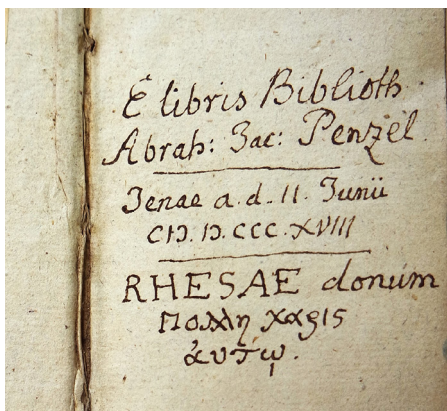 E libris Biblioth.
Abrah: Jac: Penzel.
Jenae a. d. 11 Junii
CIƆ. IƆ. CCC. XVIII
RHESAE donum
Πολλη χαρις
ἀυτῳ.